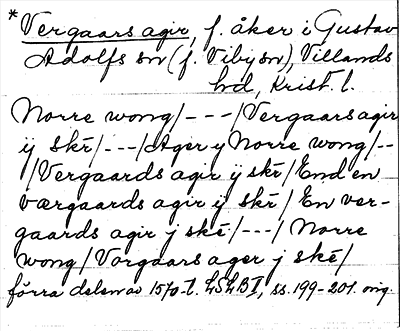 * Vergaars agir, f. åker i Gustav
Adolfs sn (f. Viby sn), Villands
hd, Krist. l.
Norre wong/---/Vergaars agir
ij skē/---/Ager y Norre wong/--
/Vergaards agir ij skē/End en
værgaards agir ij skē/En ver-
gaards agir j skē/---/Norre
wong/Vorgaars ager j skē/
förra delen av 1570-t. LSLB I, ss. 199-201. orig.